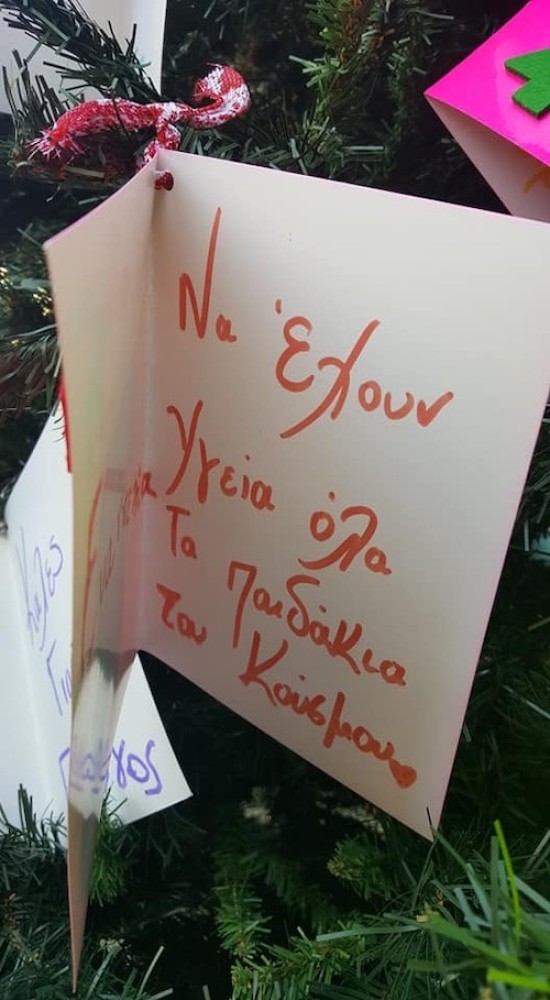 Να έχουν
Υγεία όλα
Τα παιδάκια
του Κόυσμου
Καλές